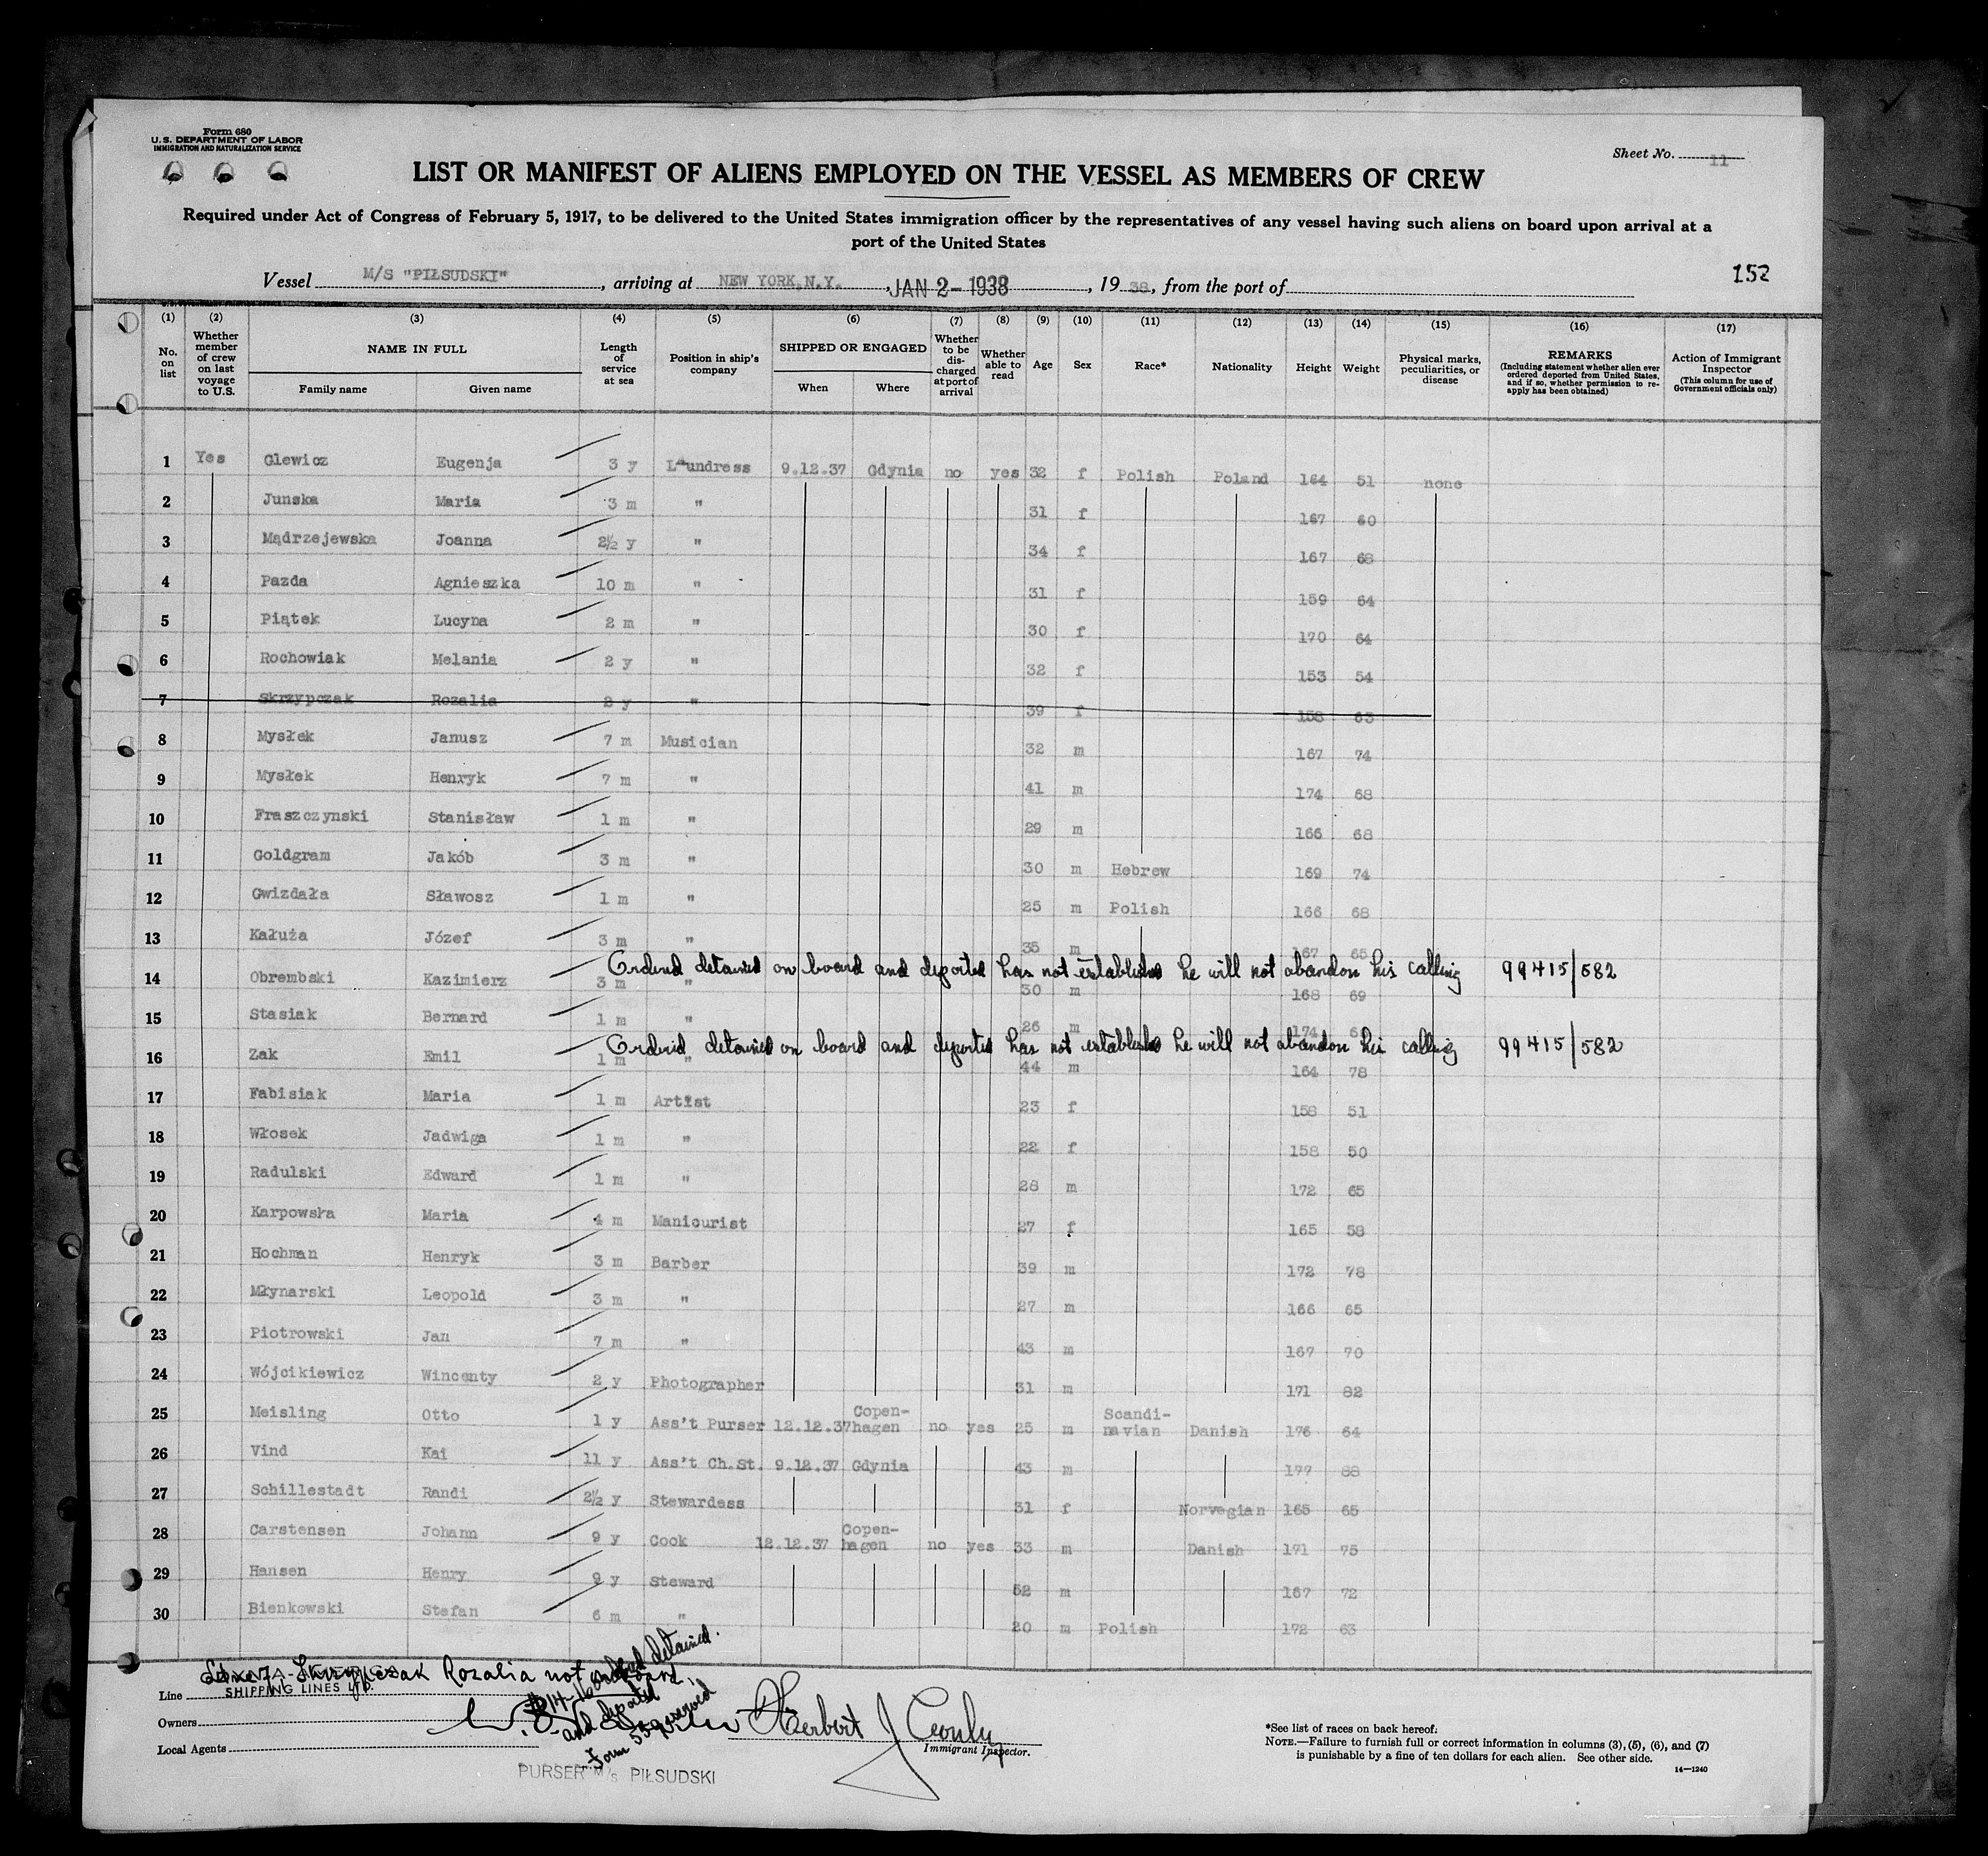 Form 680
U.S. DEPARTMENT OF LABOR
IMMIGRATION AND NATURALIZATION SERVICE
Sheet No. 11
LIST OR MANIFEST OF ALIENS EMPLOYED ON THE VESSEL AS MEMBERS OF CREW
Required under Act of Congress of February 5, 1917, to be delivered to the United States immigration officer by the representatives of any vessel having such aliens on board upon arrival at a
port of the United States
Vessel M/S "PIŁSUDSKI", arriving at NEW YORK, N.Y., JAN 2-1938, 1938, from the port of
152
(1) (2) (3) (4) (5) (6) (7) (8) (9) (10) (11) (12) (13) (14) (15) (16) (17)
No. on list
Whether member of crew on last voyage to U.S.
NAME IN FULL
Family name Given name
Length of service at sea
Position in ship's company
SHIPPED OR ENGAGED
When Where
Whether to be discharged at port of arrival
Whether able to read
Age
Sex
Race*
Nationality
Height
Weight
Physical marks, peculiarities, or disease
REMARKS
(Including statement whether alien ever ordered deported from United States, and if so, whether permission to re-apply has been obtained)
Action of Immigrant Inspector
(This column for use of Government officials only)
1 Yes Glewicz Eugenja 3 y Laundress 9.12.37 Gdynia no yes 32 f Polish Poland 164 51 none
2 Junska Maria 3 m " 31 f 167 60
3 Mądrzejewska Joanna 2½ y " 34 f 167 68
4 Pazda Agnieszka 10 m " 31 f 159 64
5 Piątek Lucyna 2 m " 30 f 170 64
6 Rochowiak Melania 2 y " 32 f 153 54
7 Skrzypczak Rozalia 2 y " 39 f 158 63
8 Mysłek Janusz 7 m Musician 32 m 167 74
9 Mysłek Henryk 7 m " 41 m 174 68
10 Fraszczynski Stanisław 1 m " 29 m 166 68
11 Goldgram Jakób 3 m " 30 m Hebrew 169 74
12 Gwizdała Sławosz 1 m " 25 m Polish 166 68
13 Kałuża Józef 3 m " 35 m 167 65
Ordered detained on board and deported has not established he will not abandon his calling 99415/582
14 Obrembski Kazimierz 3 m " 30 m 168 69
15 Stasiak Bernard 1 m " 26 m 174
Ordered detained on board and deported has not established he will not abandon his calling 99415/582
16 Zak Emil 1 m " 44 m 164 78
17 Fabisiak Maria 1 m Artist 23 f 158 51
18 Włosek Jadwiga 1 m " 22 f 158 50
19 Radulski Edward 1 m " 28 m 172 65
20 Karpowska Maria 4 m Manicurist 27 f 165 58
21 Hochman Henryk 3 m Barber 39 m 172 78
22 Młynarski Leopold 3 m " 27 m 166 65
23 Piotrowski Jan 7 m " 43 m 167 70
24 Wójcikiewicz Wincenty 2 y Photographer 31 m 171 82
25 Meisling Otto 1 y Ass't Purser 12.12.37 Copen-hagen no yes 25 m Scandi-navian Danish 176 64
26 Vind Kai 11 y Ass't Ch.St. 9.12.37 Gdynia 43 m 177 88
27 Schillestadt Randi 2½ y Stewardess 31 f Norwegian 165 65
28 Carstensen Johann 9 y Cook 12.12.37 Copen-hagen no yes 33 m Danish 171 75
29 Hansen Henry 9 y Steward 52 m 167 72
30 Bienkowski Stefan 6 m " 20 m Polish 172 63
Line 7, Skrzypczak Rozalia not on board.
#14-16 ordered detained
and deported
Form 559 served
Line
SHIPPING LINES LTD.
Owners
Local Agents
Herbert J
Immigrant Inspector.
PURSER M/s PIŁSUDSKI
*See list of races on back hereof.
NOTE.—Failure to furnish full or correct information in columns (3), (5), (6), and (7)
is punishable by a fine of ten dollars for each alien. See other side.
14—1240